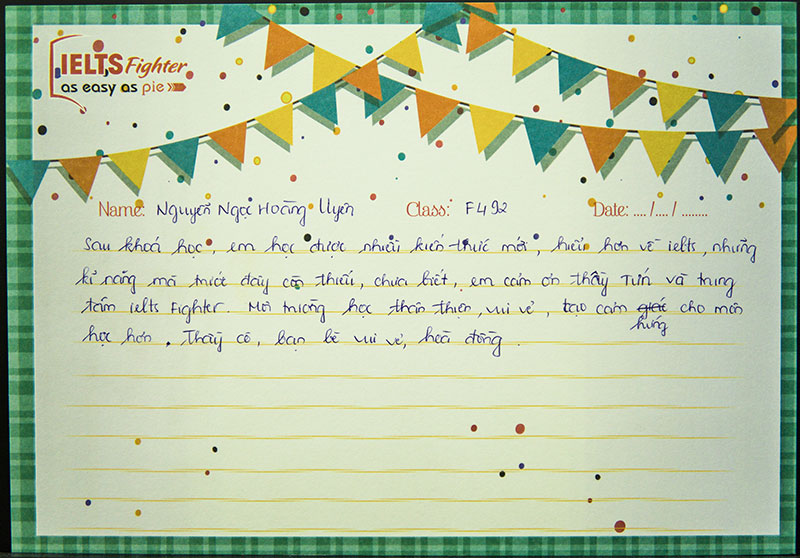 IELTS Fighter
as easy as pie
Name: Nguyễn Ngọc Hoàng Uyên Class: F492 Date: ..../..../........
Sau khoá học, em học được nhiều kiến thức mới, hiểu hơn về ielts, những
kĩ năng mà trước đây còn thiếu, chưa biết, em cảm ơn thầy Tuấn và trung
tâm ielts Fighter. Môi trường học thân thiện, vui vẻ, tạo cảm giác cho môn
hứng
học hơn. Thầy cô, bạn bè vui vẻ, hoà đồng.